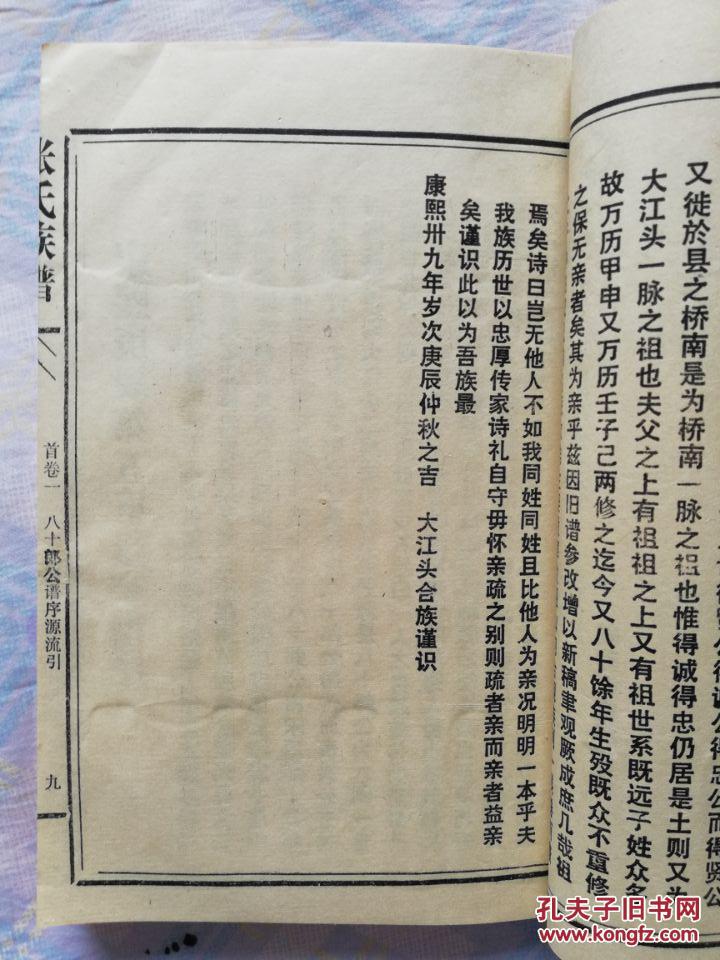 又徙於县之桥南是为桥南一脉之祖也惟得诚得忠仍居是土则又为
大江头一脉之祖也夫父之上有祖祖之上又有祖世系既远子姓众多
故万历甲申又万历壬子己两修之迄今又八十馀年生殁既众不重修
之保无亲者矣其为亲乎兹因旧谱参改增以新稿聿观厥成庶几哉祖
焉矣诗曰岂无他人不如我同姓同姓且比他人为亲况明明一本乎夫
我族历世以忠厚传家诗礼自守毋怀亲疏之别则疏者亲而亲者益亲
矣谨识此以为吾族最
康熙卅九年岁次庚辰仲秋之吉 大江头合族谨识
张氏族谱
首卷一 八十郎公谱序源流引
九
孔夫子旧书网
www.kongfz.com